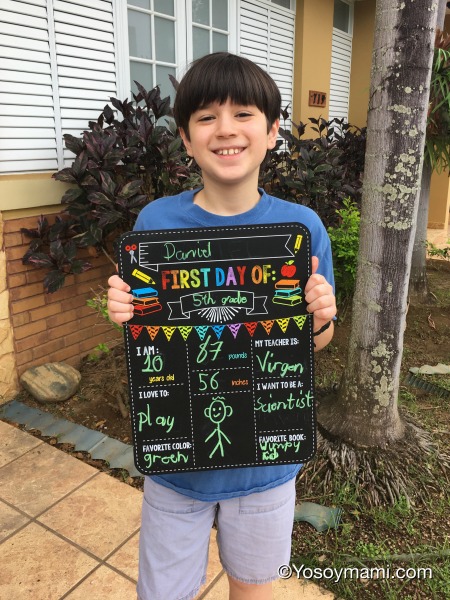 719
Daniel
FIRST DAY OF:
5th grade
I AM:
10
years old
87 pounds
56 inches
MY TEACHER IS:
Virgen
I LOVE TO:
Play
I WANT TO BE A:
Scientist
FAVORITE COLOR:
green
FAVORITE BOOK:
Wimpy
Kid
©Yosoymami.com